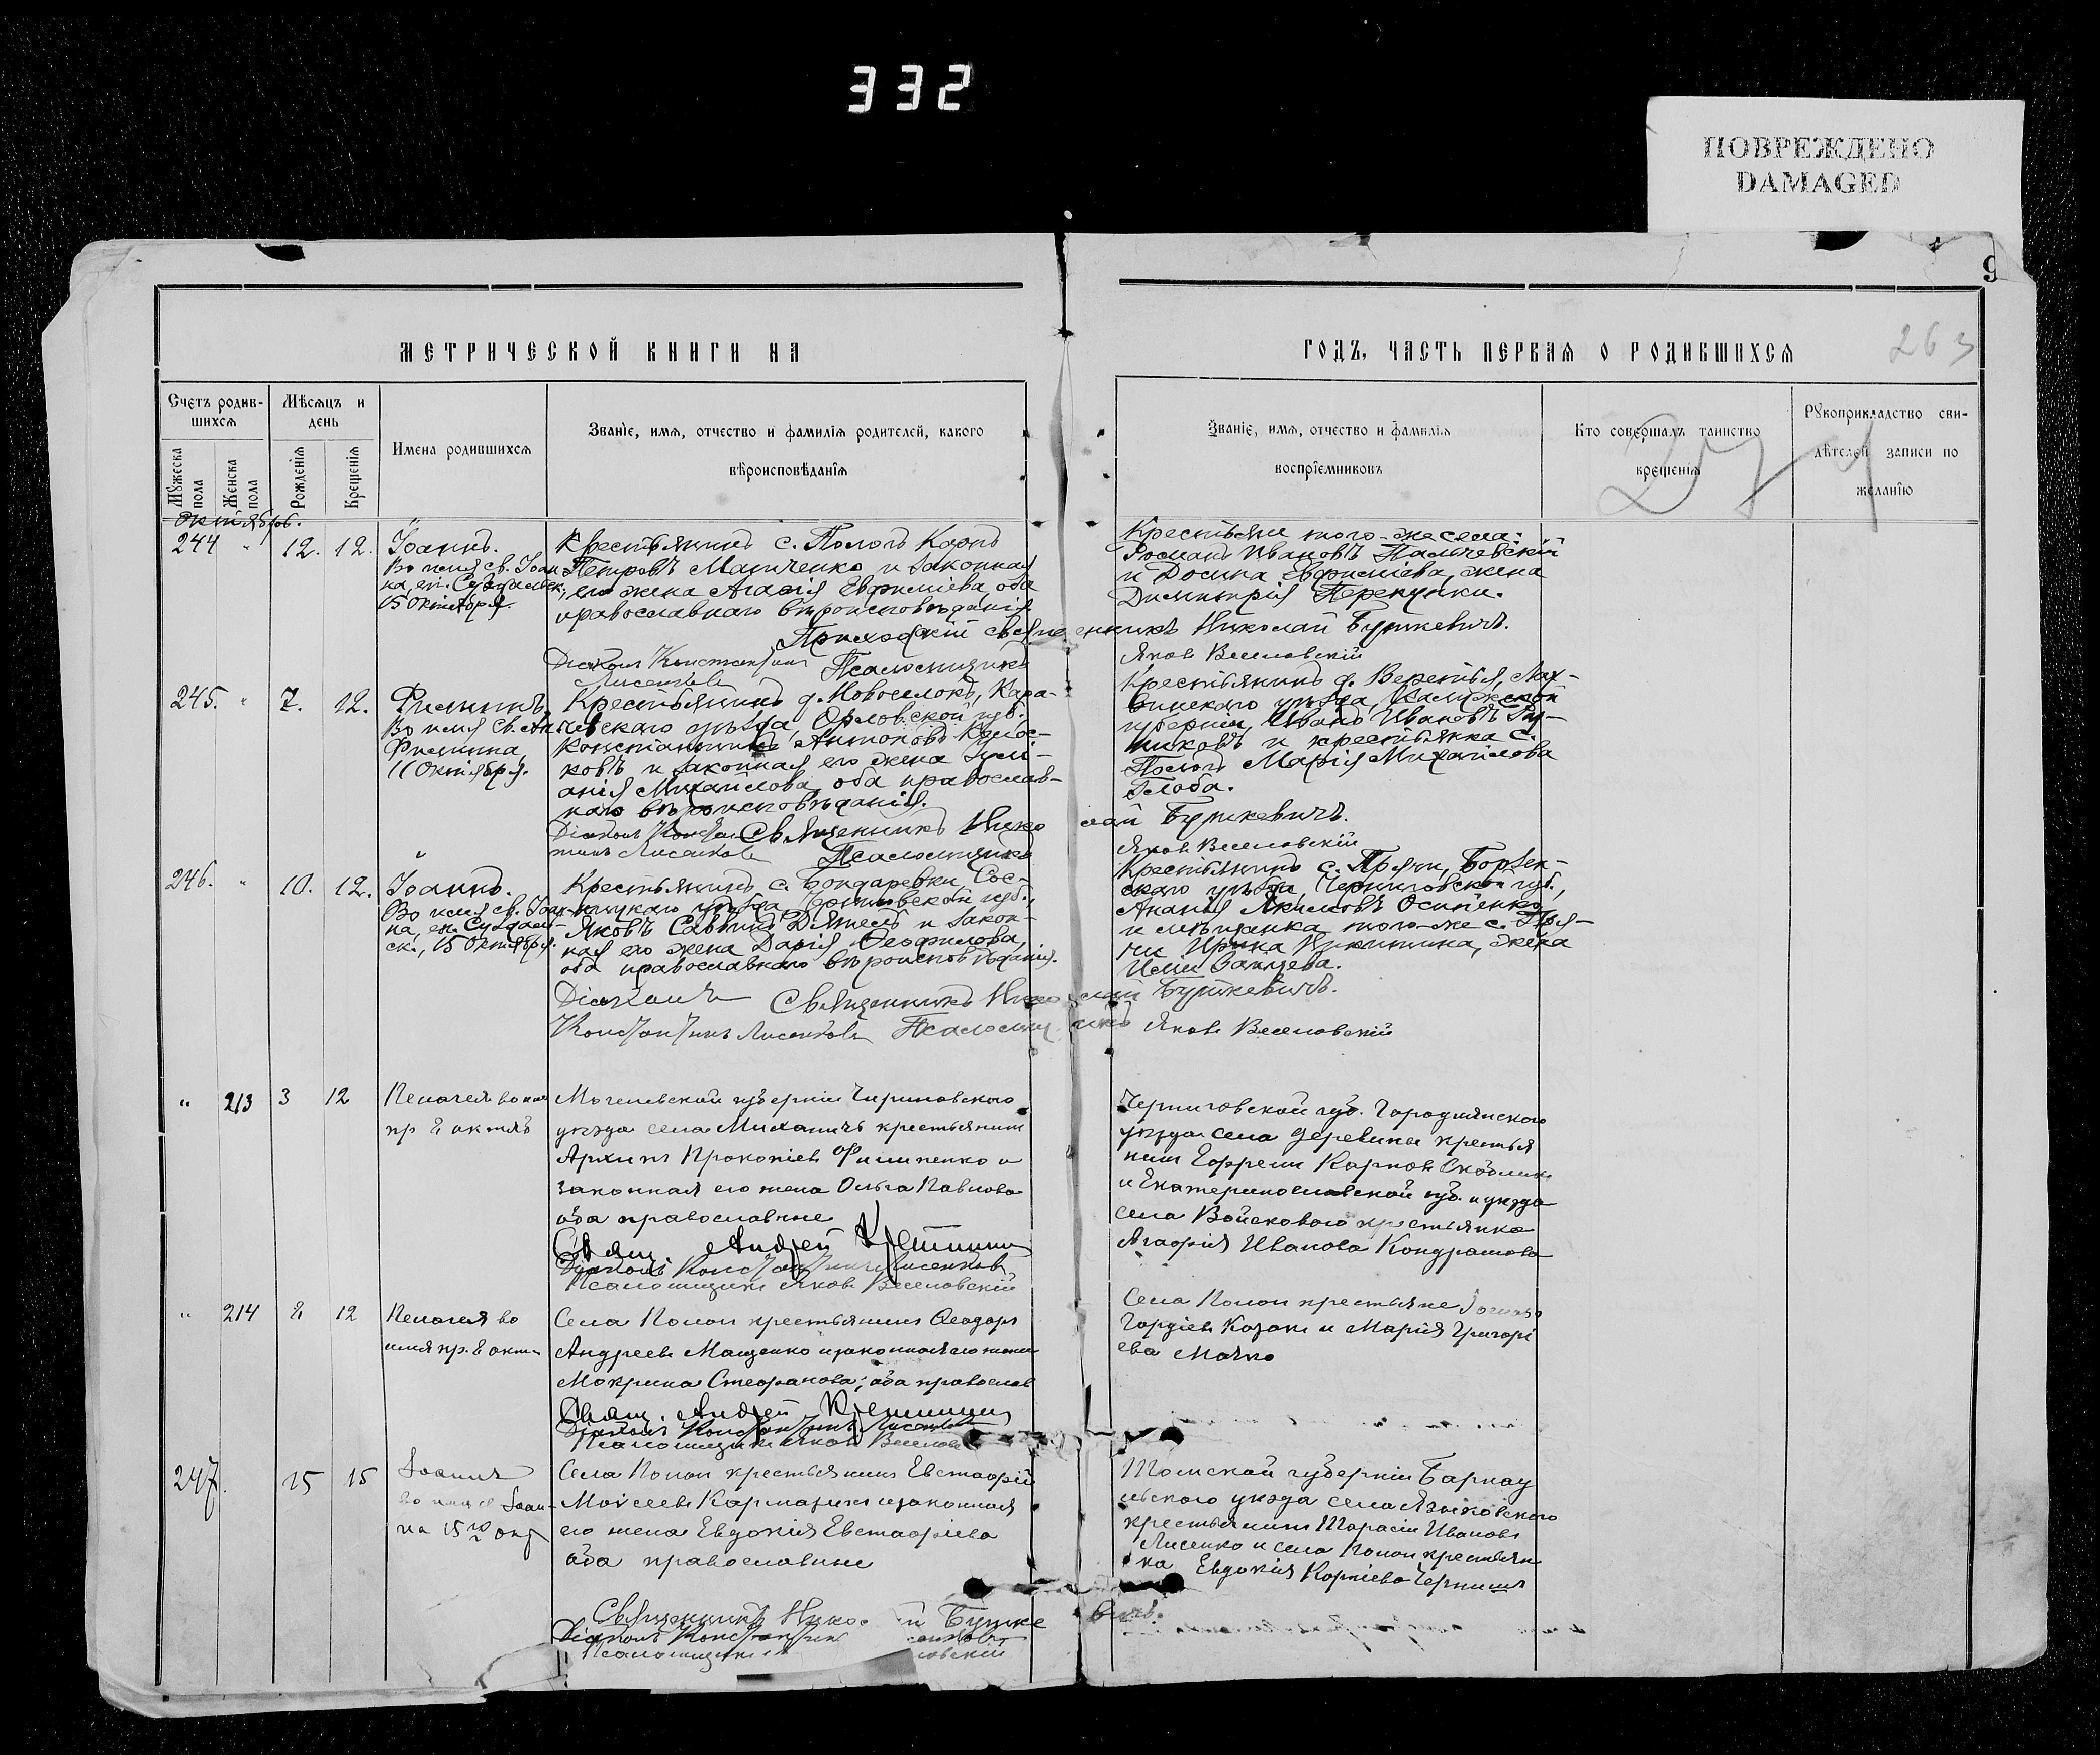 332
ПОВРЕЖДЕНО
DAMAGED
9
263
МЕТРИЧЕСКОЙ КНИГИ НА
ГОДЪ, ЧАСТЬ ПЕРВАЯ О РОДИВШИХСЯ
Счетъ родив-
шихся
Мѣсяцъ и
день
Мужеска
пола
Женска
пола
Рожденія
Крещенія
Имена родившихся
Званіе, имя, отчество и фамилія родителей, какого
вѣроисповѣданія
Званіе, имя, отчество и фамилія
воспріемниковъ
Кто совершалъ таинство
крещенія
Рукоприкладство сви-
дѣтелей записи по
желанію
Октябрь.
244 " 12. 12.
Іоаннъ.
Во имя св. Іоан-
на, еп. Суздальск.,
15 Октября.
Крестьянинъ с. Пологъ Карпъ
Петровъ Матченко и законная
его жена Агафія Евфиміева, оба
православнаго вѣроисповѣданія
Крестьяне того-же села:
Романъ Ивановъ Пальчевскій
и Домна Евфиміева, жена
Димитрія
Приходскій священникъ Николай Буткевичъ.
Діаконъ Константинъ
Лисенковъ
Псаломщикъ
Яковъ Веселовскій
245. " 7. 12.
Филиппъ.
Во имя св. Ап.
Филиппа,
11 Октября.
Крестьянинъ д. Новоселокъ, Кара-
чевскаго уѣзда, Орловской губ.,
Константинъ Антоновъ
ковъ и законная его жена
анія Михайлова, оба православ-
наго вѣроисповѣданія.
Крестьянинъ д. Веретья, Лих-
винскаго уѣзда, Калужской
губерніи, Иванъ Ивановъ
и крестьянка с.
Пологъ Марія Михайлова
Глоба.
Священникъ Николай Буткевичъ.
Псаломщикъ
Яковъ Веселовскій
246. " 10. 12.
Іоаннъ.
Во имя св. Іоан-
на, еп. Суздаль-
ск., 15 Октября.
Крестьянинъ с. Бондаревки, Сос-
ницкаго уѣзда, Черниговской губ.,
Яковъ Саввинъ и закон-
ная его жена Дарія Ѳеофилова,
оба православнаго вѣроисповѣданія.
Крестьянинъ с. Прачи, Борзен-
скаго уѣзда, Черниговской губ.,
Ананія Якимовъ Осипенко
и мѣщанка того-же с. Пра-
чи Ирина Никитина, жена
Иліи Зайцева.
Діаконъ
Священникъ Николай Буткевичъ.
Константинъ Лисенковъ Псаломщикъ Яковъ Веселовскій
" 213 3 12
Пелагея во имя
пр 8 октяб
Могилевской губерніи
уезда села крестьянинъ
Архипъ Прокопіевъ Филипенко и
законная его жена Ольга Павлова
оба православные
Черниговской губ. Городнянского
уезда села Деревины крестья
нинъ Ефремъ Карповъ
и Екатеринославской губ. и уезда
села Войскового крестьянка
Агафія Иванова Кондрашова
Свящ. Андрей
Діаконъ Константинъ Лисенковъ
Псаломщикъ Яковъ Веселовскій
" 214 8 12
Пелагея во
имя пр. 8 окт.
Села Пологи крестьянинъ Ѳеодоръ
Андреевъ Мащенко и законная его жена
Мокрина Стефанова; оба православ
Села Пологи крестьяне
Гордіевъ Козакъ и Марія Григорі
ева
Свящ. Андрей
Діаконъ Константинъ Лисенковъ
Псаломщикъ Яковъ Веселовс
247. 15 15
Іоаннъ
во имя Іоан-
на 15го окт
Села Пологи крестьянинъ Евстафій
Моісеевъ Кармазинъ и законная
его жена Евдокія Евстафіева
оба православные
Томской губерніи Барнау
льского уезда села Языковского
крестьянинъ Тарасій Ивановъ
Лисенко и села Пологи крестьян
ка Евдокія Корніева Чернышъ
Священникъ Нико й Буткевичъ.
Діаконъ Константинъ
Псаломщикъ